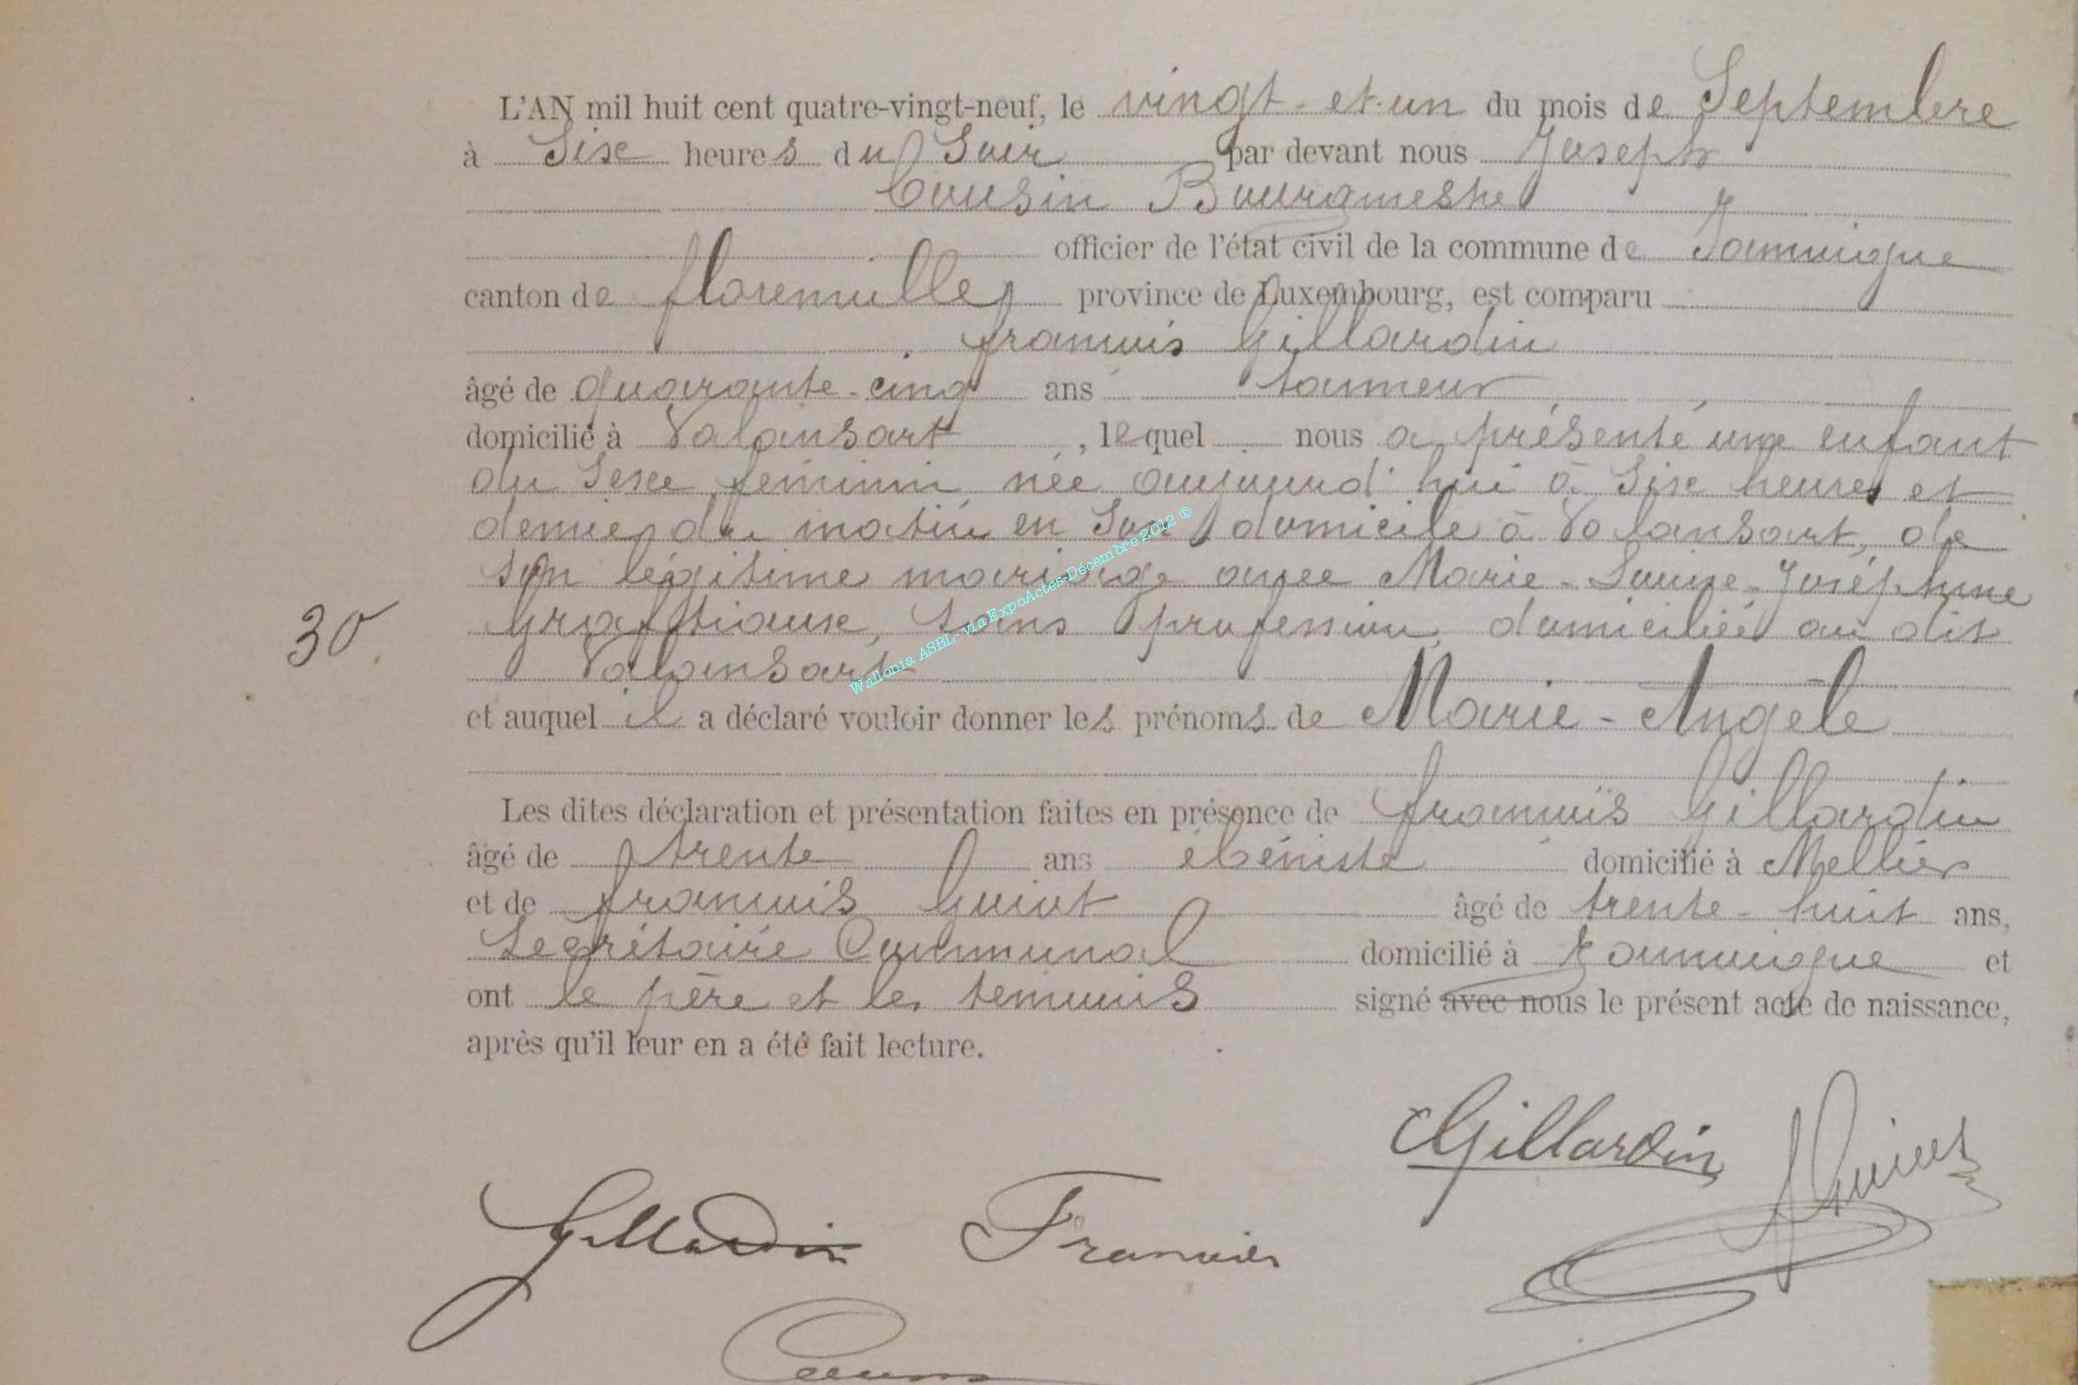 L'AN mil huit cent quatre-vingt-neuf, le vingt-et-un du mois de Septembre
à Six heures du Soir par devant nous Joseph
Cousin Bourgmestre
officier de l'état civil de la commune de Jamoigne
canton de florenville province de Luxembourg, est comparu
françois Gillardin
âgé de quarante-cinq ans tanneur
domicilié à Valansart, lequel nous a présenté une enfant
du Sexe féminin née aujourd'hui à Six heures et
demie du matin en Son domicile à Valansart, de
son légitime mariage avec Marie-Louise-Joséphine
Graftiaux, sans profession, domiciliée au dit
30. Valansart
et auquel il a déclaré vouloir donner les prénoms de Marie-Angèle
Les dites déclaration et présentation faites en présence de françois Gillardin
âgé de trente ans ébéniste domicilié à Mellier
et de françois Guiot âgé de trente-huit ans,
Secrétaire Communal domicilié à Jamoigne et
ont le père et les temoins signé avec nous le présent acte de naissance,
après qu'il leur en a été fait lecture.
Gillardin
Guiot
Gillardin François
Wallonia ASBL - via ExpoActes-Décembre 2012 ©